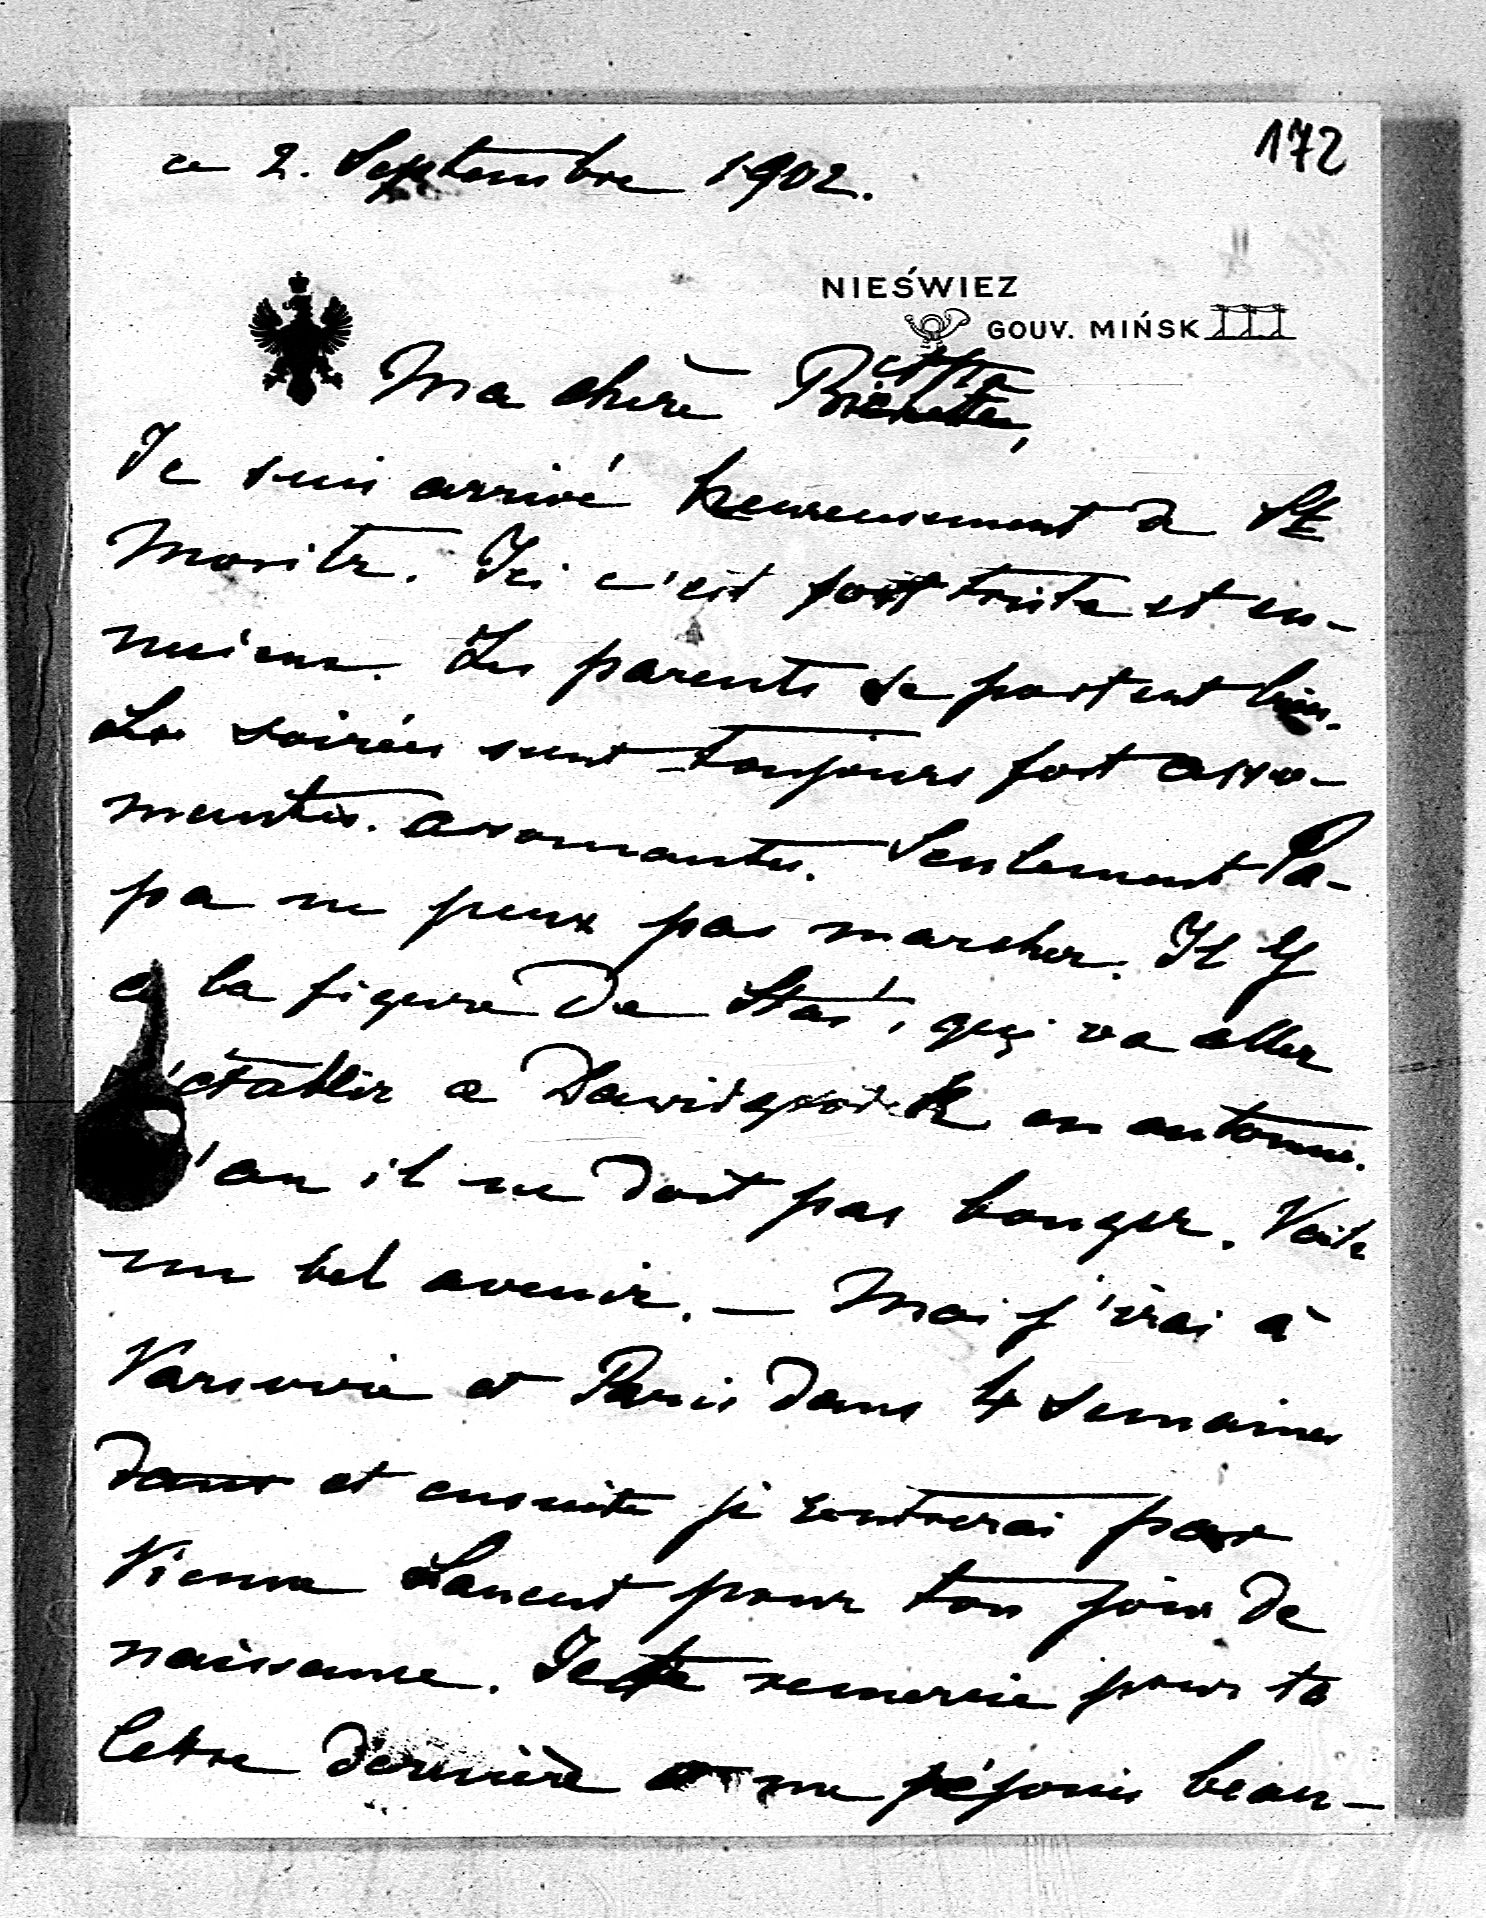 172
ce 2. Septembre 1902.
NIEŚWIEZ
GOUV. MIŃSK
Ma chère
Je suis arrivé heureusement de St
Moritz. Ici c'est fort triste et en-
nuieux. Les parents se portent bien.
Les soirées sont toujours fort asso-
mantes. assomantes. Seulement Pa-
pa ne peux pas marcher. Il y
a la figure de Staś, qui va aller
s'établir a Dawidgrodek en automne.
'an il ne doit pas bouger. Voila
un bel avenir. — Moi j'irai à
Varsovie et Paris dans 4 semaines
dans et ensuite je rentrerai par
Vienne Lancut pour ton jour de
naissance. Je te remercie pour ta
lettre dernière et me réjouis beau-